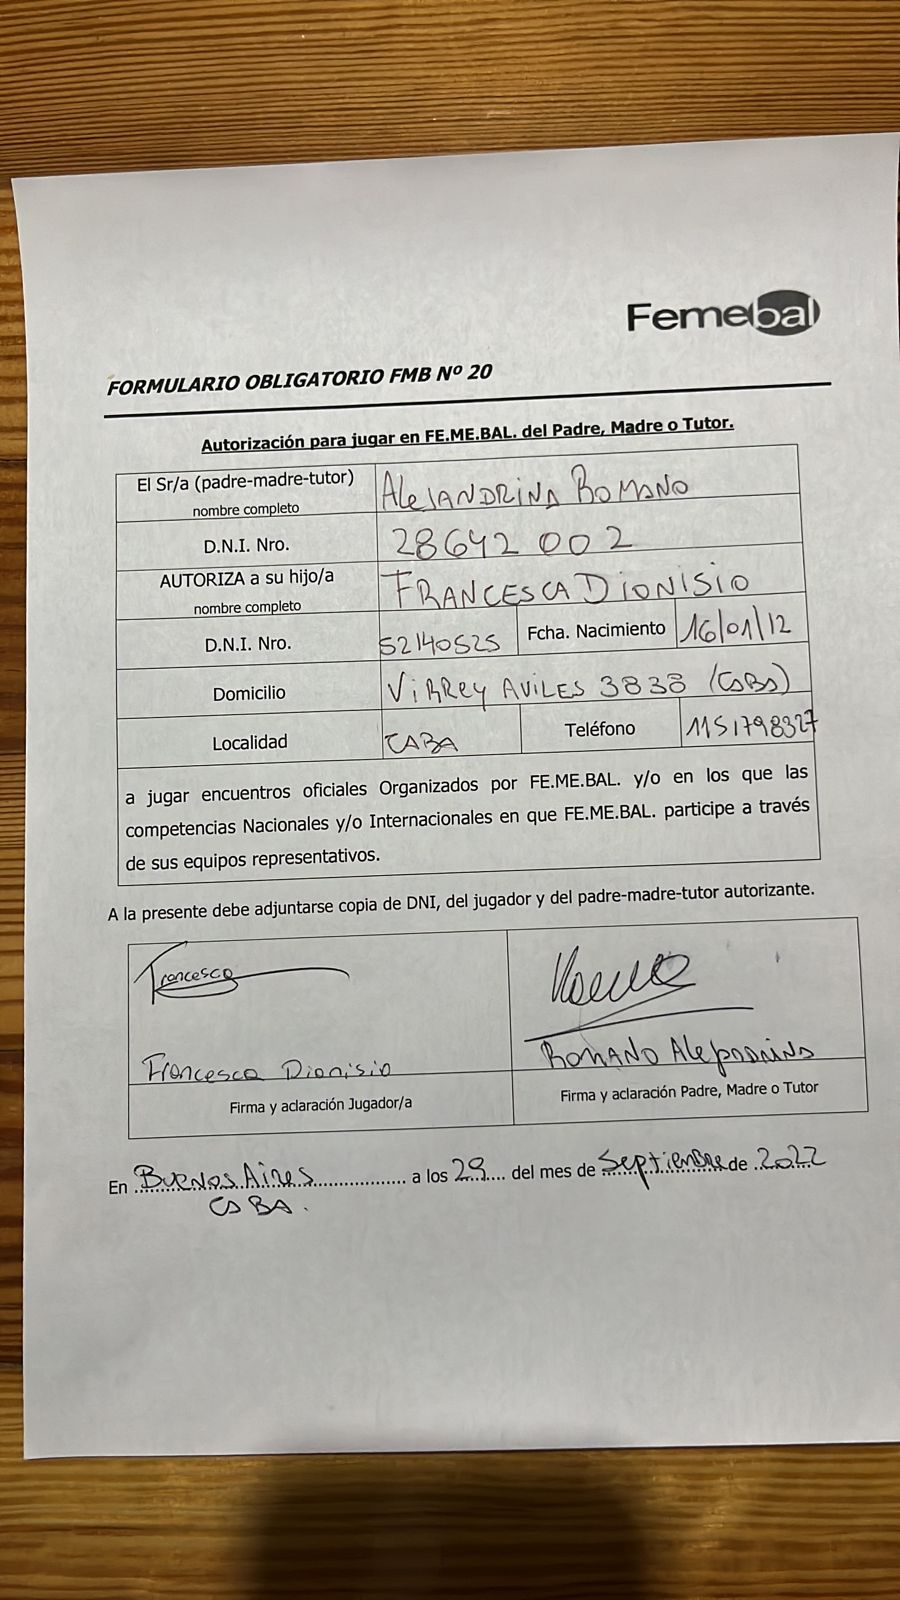 Femebal
FORMULARIO OBLIGATORIO FMB Nº 20
Autorización para jugar en FE.ME.BAL. del Padre, Madre o Tutor.
El Sr/a (padre-madre-tutor)
nombre completo
AleJANDRINA ROMANO
D.N.I. Nro.
28642 002
AUTORIZA a su hijo/a
nombre completo
FRANCESCA DIONISIO
D.N.I. Nro.
52140525
Fcha. Nacimiento
16/01/12
Domicilio
VIRREY AVILES 3838 (CABA)
Localidad
CABA
Teléfono
1151798327
a jugar encuentros oficiales Organizados por FE.ME.BAL. y/o en los que las
competencias Nacionales y/o Internacionales en que FE.ME.BAL. participe a través
de sus equipos representativos.
A la presente debe adjuntarse copia de DNI, del jugador y del padre-madre-tutor autorizante.
Francesca
Francesca Dionisio
Firma y aclaración Jugador/a
ROMANO Alejandrina
Firma y aclaración Padre, Madre o Tutor
En Buenos Aires a los 29 del mes de Septiembre de 2022
CABA.